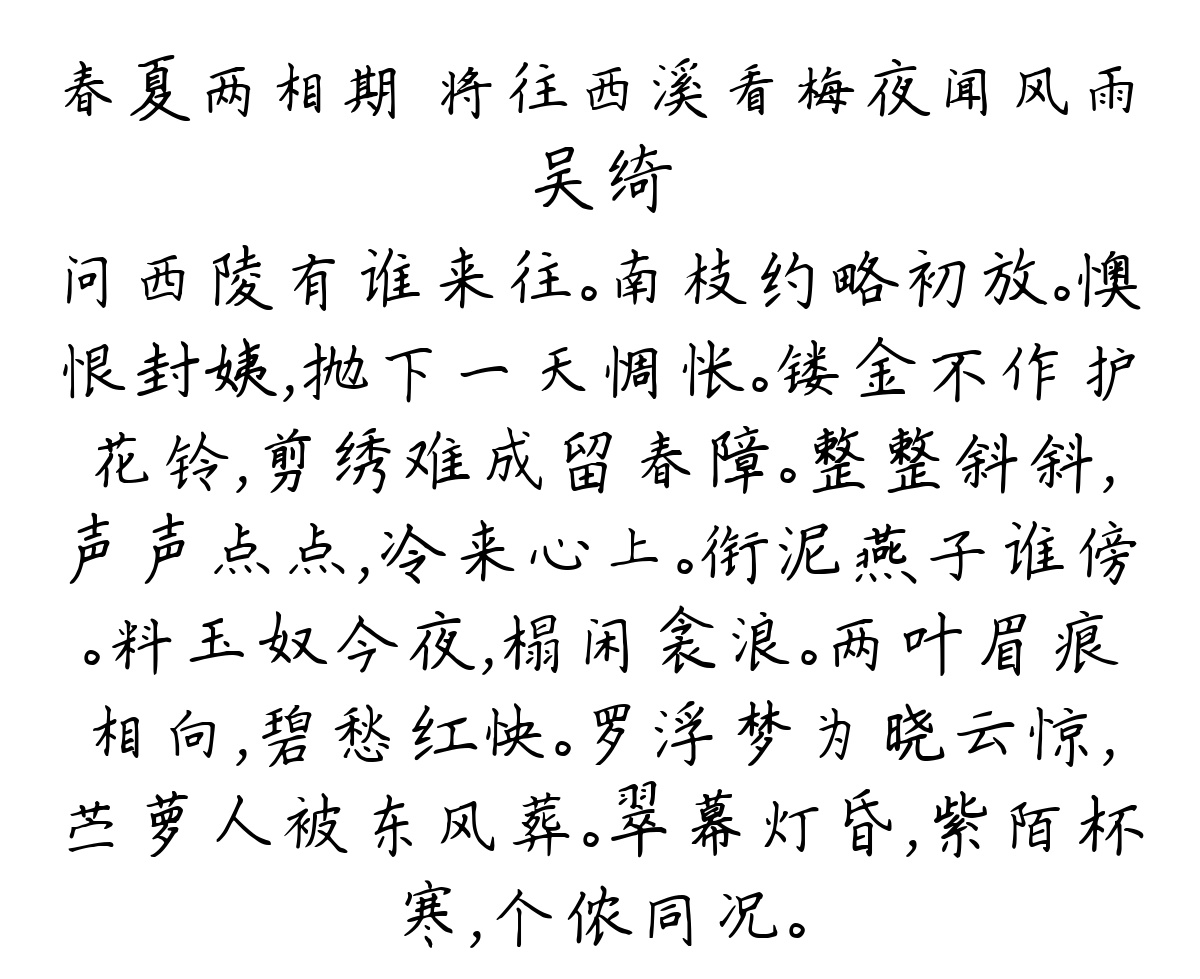 春夏两相期 将往西溪看梅夜闻风雨
吴绮
问西陵有谁来往。南枝约略初放。懊
恨封姨,抛下一天惆怅。镂金不作护
花铃,剪绣难成留春障。整整斜斜,
声声点点,冷来心上。衔泥燕子谁傍
。料玉奴今夜,榻闲衾浪。两叶眉痕
相向,碧愁红怏。罗浮梦为晓云惊,
苎萝人被东风葬。翠幕灯昏,紫陌杯
寒,个侬同况。